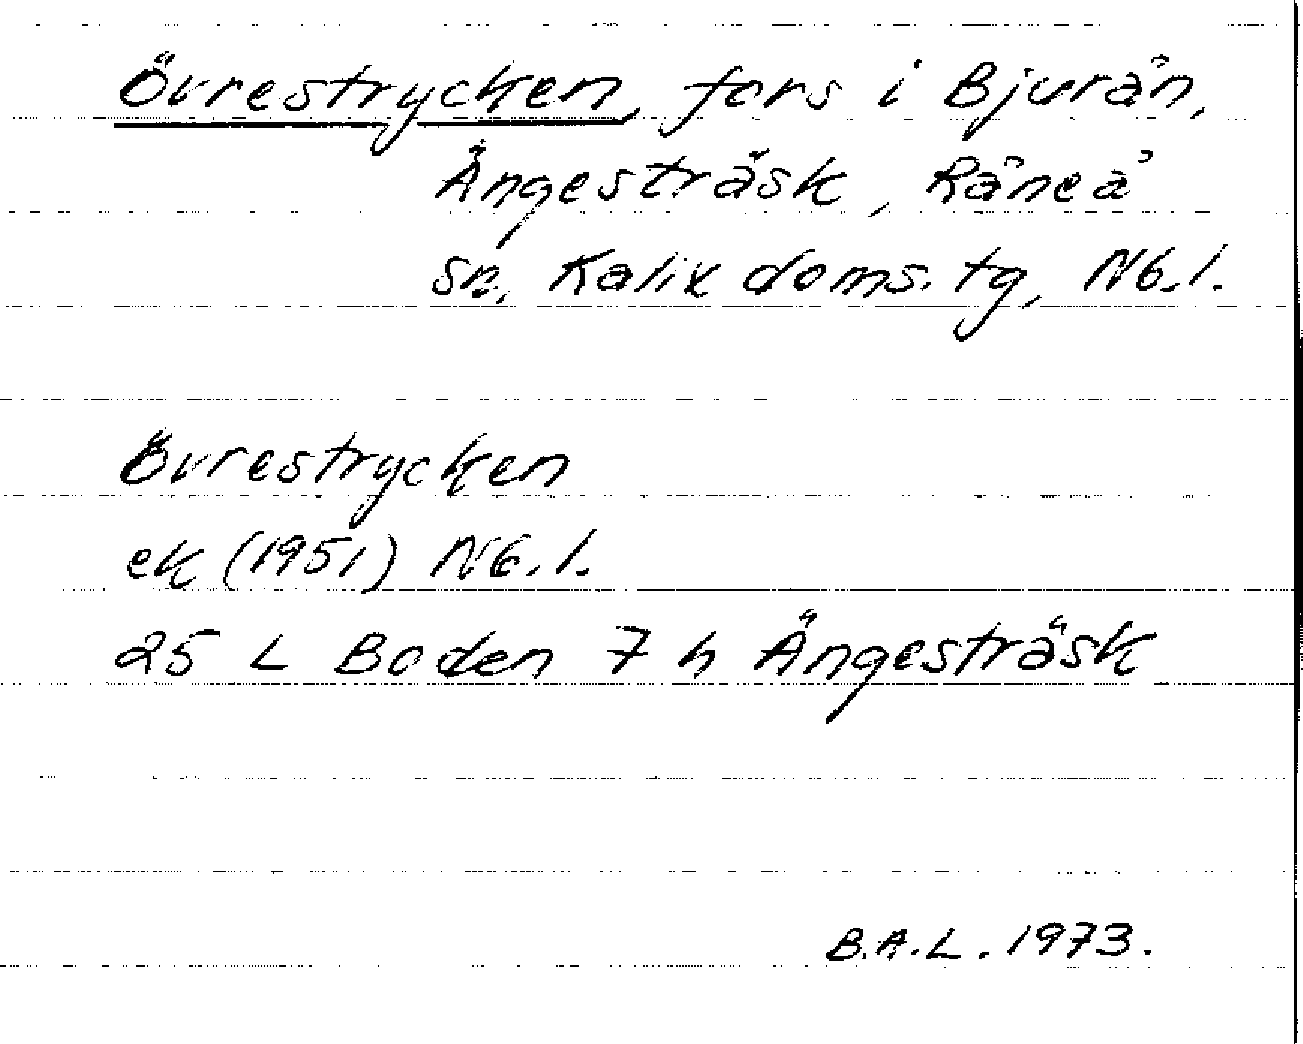 Övrestrycken, fors i Bjurån,
Ängesträsk, Råneå
sn, Kalix doms. tg, Nb. l.
Övrestrycken
ek (1951) Nb. l.
25 L Boden 7 h Ängesträsk
B.A.L. 1973.